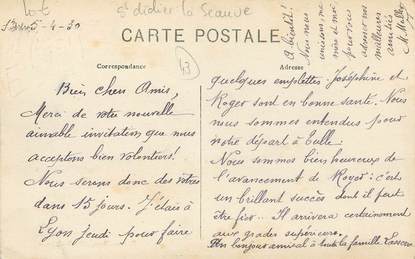 St didier la Seauve
5-4-30
CARTE POSTALE
Correspondance
Adresse
43
Bien chers Amis,
Merci de votre nouvelle
aimable invitation que nous
acceptons bien volontiers!
Nous serons donc des vôtres
dans 15 jours. J'étais à
Lyon jeudi pour faire
quelques emplettes. Joséphine et
Roger sont en bonne santé. Nous
nous sommes entendus pour
notre départ à Tulle.
Nous sommes bien heureux de
l'avancement de Roger: c'est
un brillant succès dont il peut
être fier.. Il arrivera certainement
aux grades supérieurs.
Un bonjour amical à toute la famille
A bientôt!
Nous nous
unissons ma
mère et moi
pour vous
adresser nos
meilleures
amitiés